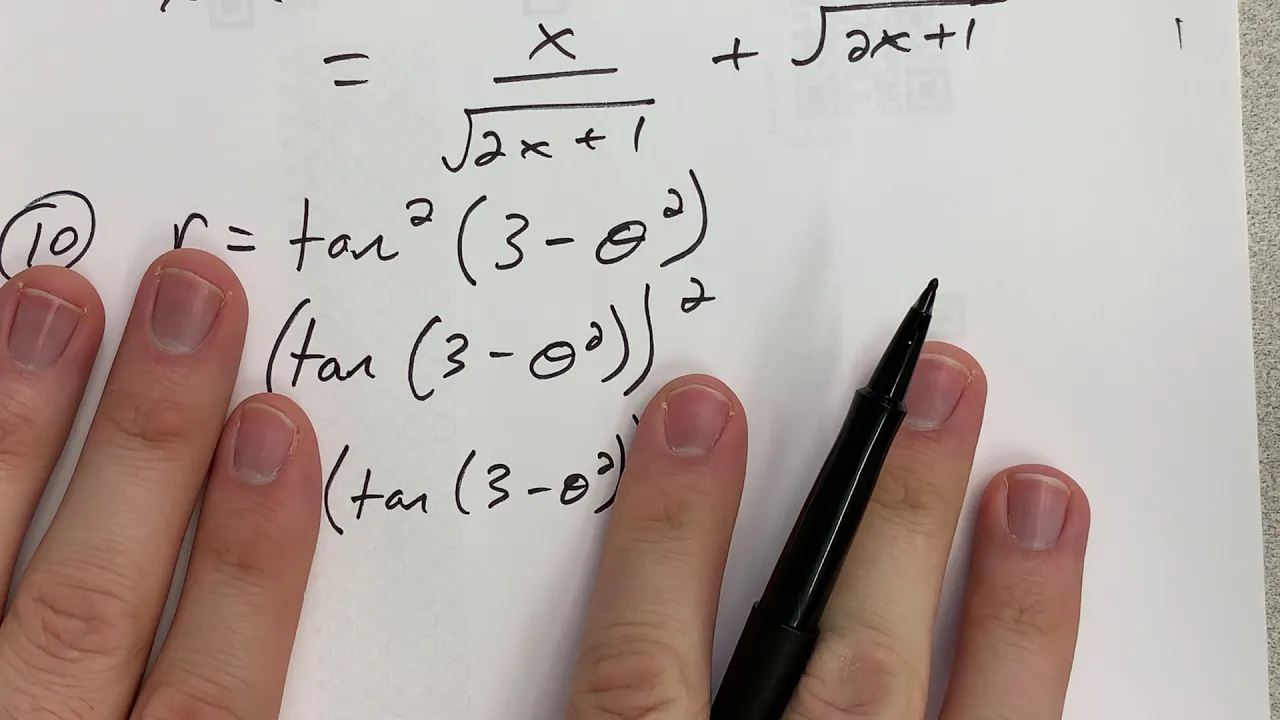 = x / √(2x + 1) + √(2x + 1)
10 r = tan² (3 − θ²)
(tan (3 − θ²))²
(tan (3 − θ²)